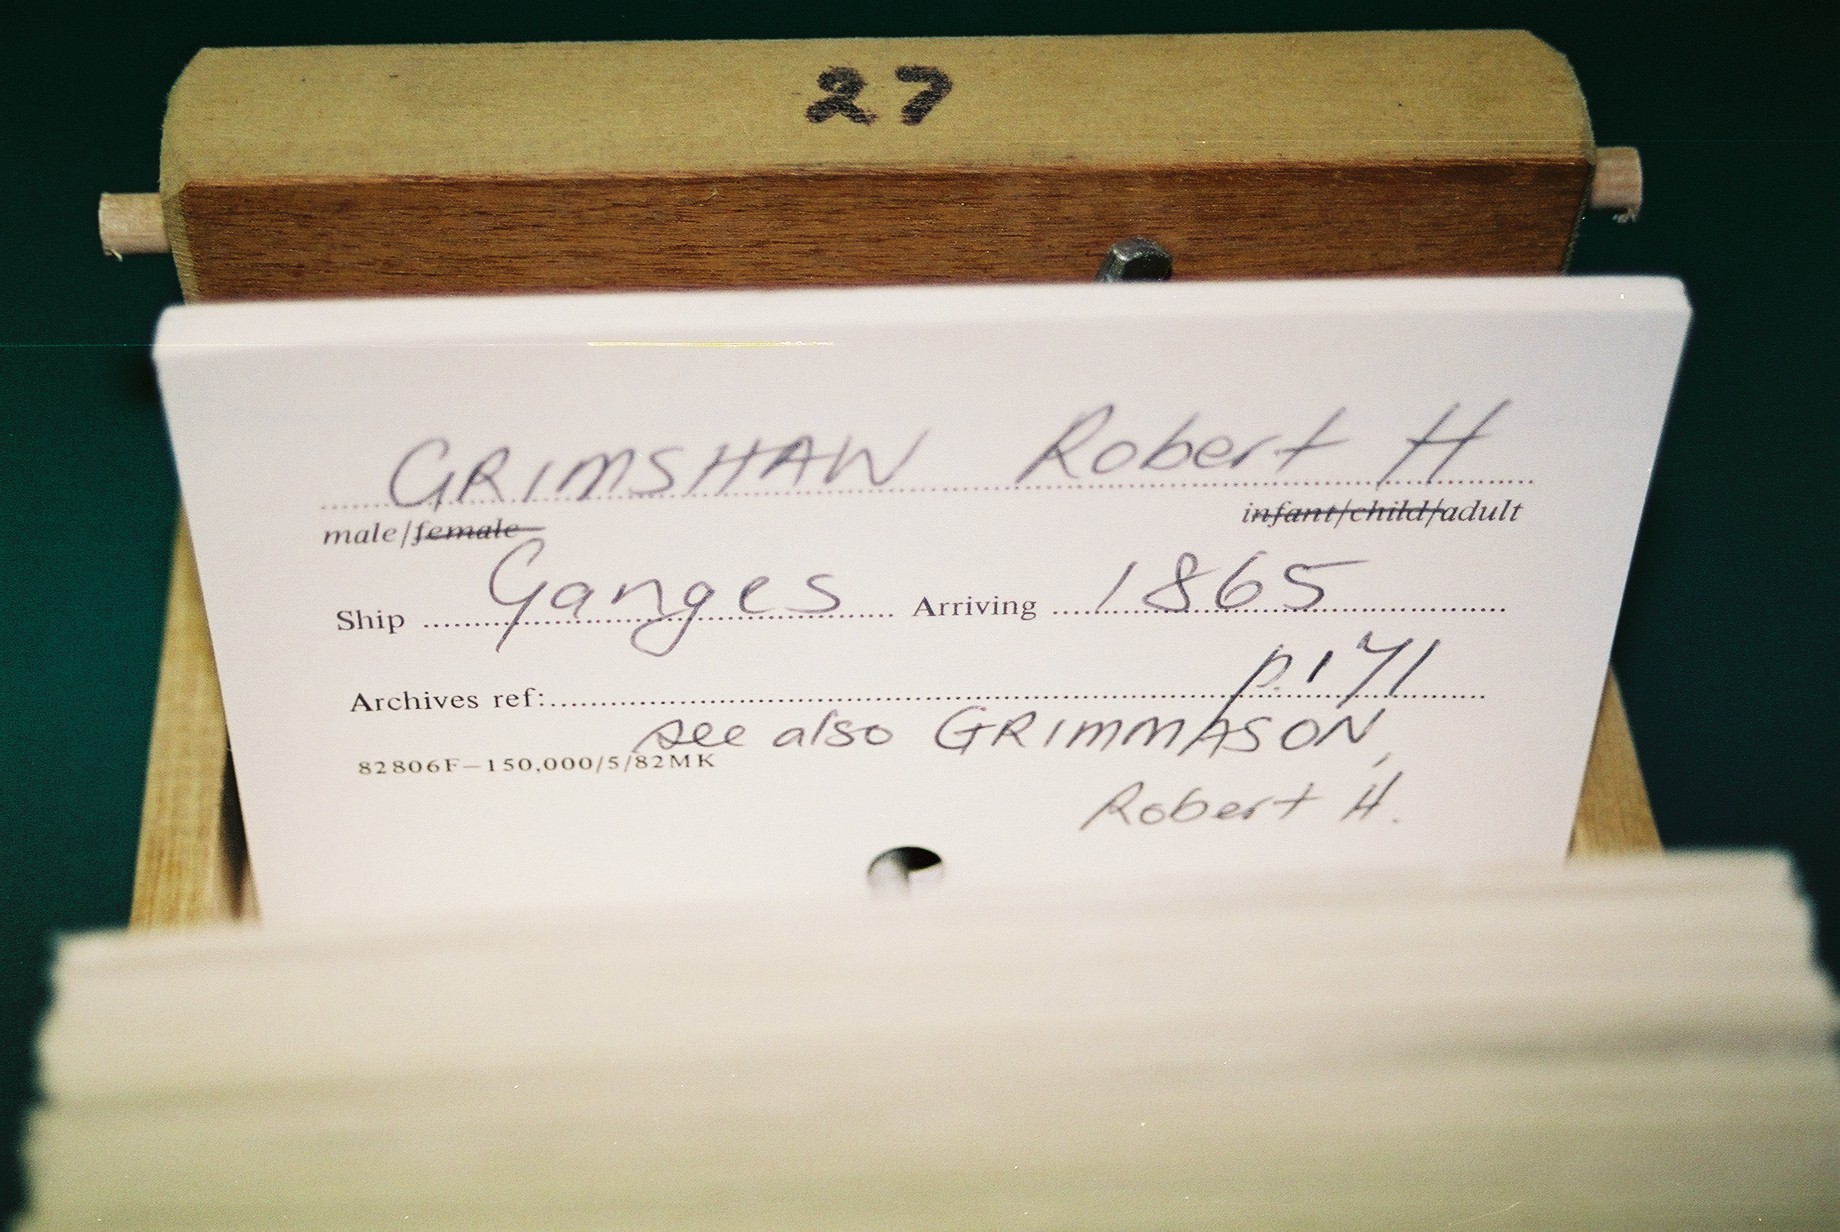 27
GRIMSHAW Robert H
male/female infant/child/adult
Ship Ganges Arriving 1865
Archives ref: p.171
see also GRIMMASON,
82806F—150,000/5/82MK
Robert H.